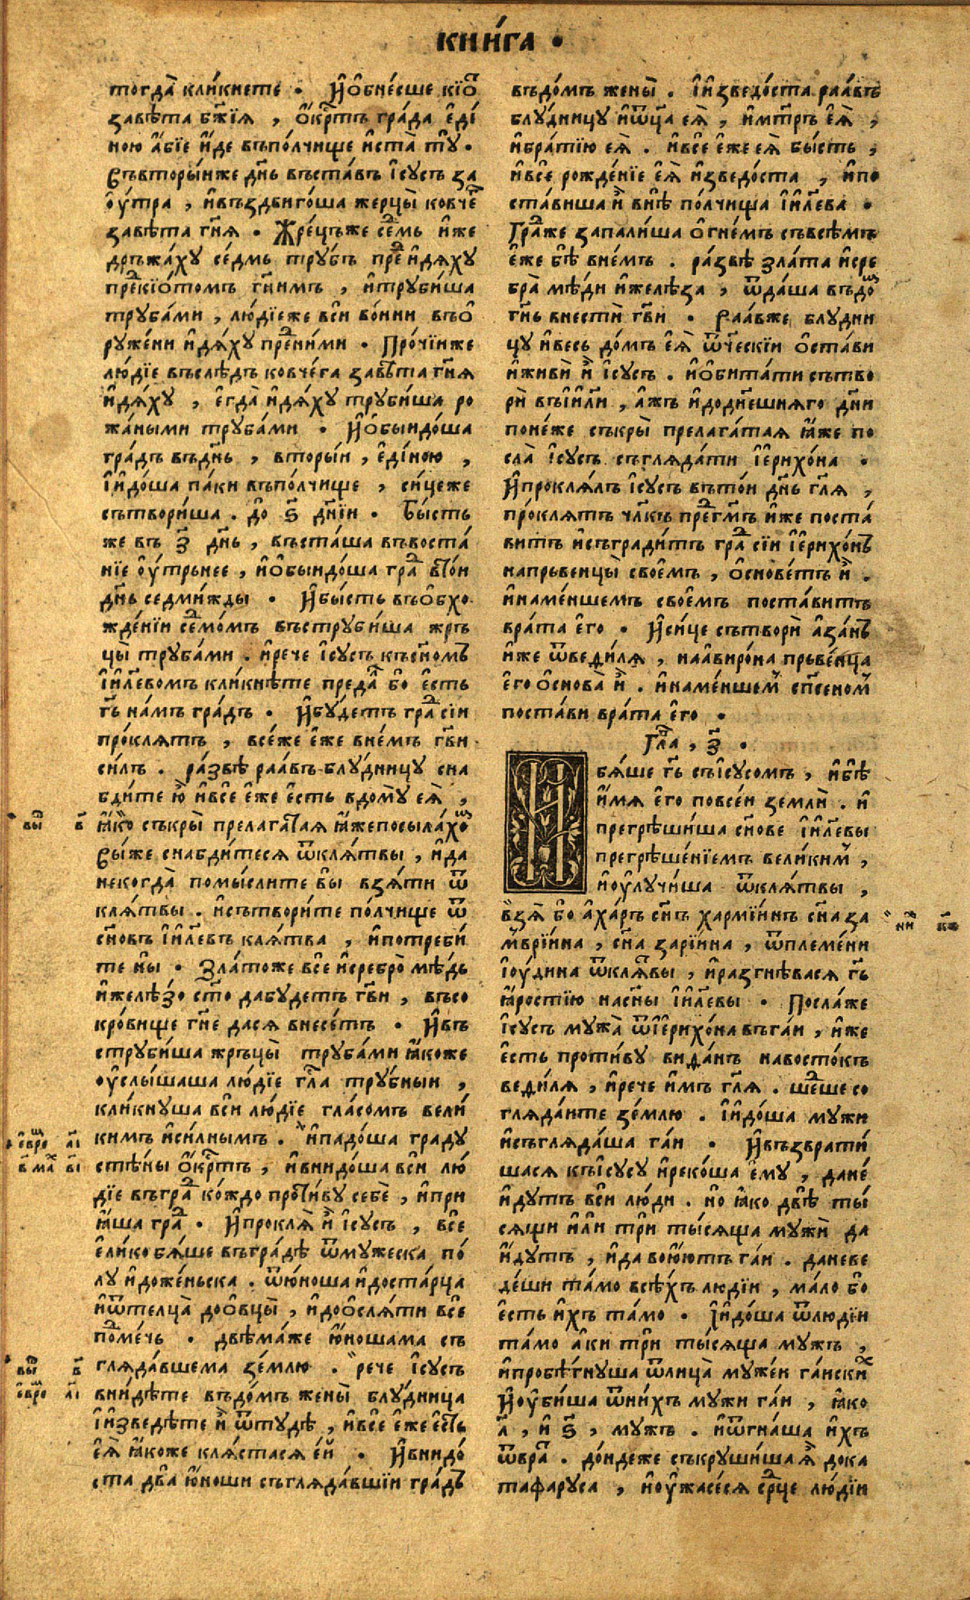 кни́га .
тогда̀ кли́кнете . И҆обне́сше кїѡ҇
завѣ́та бж҃їѧ , ѻ҆́крⷭ҇тъ гра́да є҆ді́
ною а҆́бїе и҆́де въполчище и҆ста̀ тꙋ̀ .
Съвторы́иже дн҃ь въста́въ і҆сꙋсъ за
оу҆́тра , и҆въздвиго́ша жерцы̀ ковче҇
завѣ́та гн҃ѧ . Жре́цъже се́дмь и҆же
дръжа́хꙋ се́дмь трꙋ́бъ пред̾ и҆дѧ́хꙋ
прекїѡ́томъ гн҃имъ , и҆трꙋби́ша
трꙋба́ми , лю́дїеже всѝ во́ини въѻ҆
рꙋже́ни и҆дѧ́хꙋ пред̾ни́ми . Про́чїиже
лю́дїе въслѣ́дъ ковче́га завѣ́та гн҃ѧ
и҆дѧ́хꙋ , є҆гда̀ и҆дѧ́хꙋ трꙋби́ша ро
жа́ными трꙋба́ми . И҆ѻ҆быидо́ша
гра́дъ въдн҃ь , вторы́и , є҆ди́ною ,
І҆идо́ша па́ки въпо́лчище , си́цеже
сътвори́ша . до ѕ҃ дн҃їи . Бы́сть
же въ з҃ дн҃ь , въста́ша въвоста́
нїе оу҆́трьнее , и҆ѻ҆быидо́ша гра́д̾ въто́и
дн҃ь седми́жды . И҆бы́сть въѻ҆бхо
жде́нїи се́дмомъ въстрꙋби́ша жръ
цы̀ трꙋба́ми . и҆рече і҆сꙋсъ късн҃омъ
і҆и҃левомъ кликнѣ́те предад̾ бо є҆сть
гь҃ на́мъ гра́дъ . И҆бꙋ́детъ гра́д̾ сїи
про́клѧтъ , все́же є҆же вне́мъ гв҃и
си́лъ . ра́звѣ раа́въ блꙋдни́цꙋ сна
бди́те ю҆̀ и҆все є҆же є҆сть вдо́мꙋ є҆ѧ̀ ,
ꙗ҆́ко съкры̀ прелага́таѧ ꙗ҆́жепосыла́хо҇
Съі́же снабди́тесѧ ѿклѧ́твы , и҆да
некогда̀ помы́слите вы̀ взѧ́ти ѿ
клѧ́твы . и҆сътвори́те по́лчище ѿ
сн҃о́въ і҆и҃лѐвъ клѧ́тва , и҆потреби́
те ны̀ . Зла́тоже всѐ и҆серебро̀ мѣ́дь
и҆желѣ́зо ст҃о да́бꙋдетъ гв҃и , въсо
кро́вище гн҃е да́сѧ внесе́тъ . И҆въ
стрꙋби́ша жръцы̀ трꙋба́ми ꙗ҆́коже
оу҆слы́шаша лю́дїе гл҃а трꙋ́бныи ,
кли́кнꙋша всѝ лю́дїе гла́сомъ вели́
кимъ и҆си́лнымъ . и҆падо́ша градꙋ
стѣ́ны ѻ҆́крⷭ҇тъ , и҆внидо́ша всѝ лю́
дїе въгра́д̾ ко́ждо проти́вꙋ себѐ , и҆при
ꙗ҆́ша гра́д̾ . И҆проклѧ̀ и҆̀ і҆сꙋсъ , всѐ
є҆ли́ко бѧ́ше въгра́дѣ ѿмꙋ́жеска по́
лꙋ и҆доже́ньска . ѿю҆́ноша и҆доста́рца
и҆ѿтелца̀ доѻ҆вцы̀ , и҆доѻ҆слѧ́ти всѐ
по́д̾ ме́чь . двѣма́же ю҆́ношама съ
глѧда́вшема зе́млю . рече і҆сꙋсъ
внидѣ́те въдо́мъ жены̀ блꙋдни́ца
І҆изведѣ́те и҆̀ ѿтꙋдѣ , и҆все є҆же є҆́сть
є҆ѧ̀ ꙗ҆́коже клѧ́стасѧ є҆́й . И҆внидо́
ста два̀ ю҆́ноши съглѧда́вшїи гра́дъ
въдо́мъ жены̀ . І҆изведо́ста раа́въ
блꙋдни́цꙋ и҆ѿц҃а є҆ѧ̀ , и҆мт҃рь є҆ѧ̀ ,
и҆бра́тїю є҆ѧ̀ . и҆все є҆же є҆ѧ̀ бы́сть ,
и҆все рожде́нїе є҆ѧ̀ и҆зведо́ста , и҆по
ста́виша и҆̀ внѣ̀ по́лчища і҆и҃лева .
Гра́д̾же запали́ша ѻ҆гне́мъ съвсѣ́мъ
є҆́же бѣ̀ вне́мъ . ра́звѣ зла́та и҆сре
бра̀ мѣ́ди и҆желѣ́за , ѿда́ша въдо҇
гн҃ь внестѝ гв҃и . Раа́вже блꙋдни
цꙋ и҆весь до́мъ є҆ѧ̀ ѿч҃ескїи ѻ҆ста́ви
и҆живѝ и҆̀ і҆сꙋсъ . и҆ѻ҆бита́ти сътво
рѝ въі҆и҃ли , а҆́жъ и҆додн҃ешнѧго дн҃и
поне́же съкры̀ прелага́таѧ ꙗ҆́же по
сла̀ і҆сꙋсъ съглѧда́ти і҆ерихо́на .
И҆проклѧ́лъ і҆сꙋсъ въто́и дн҃ь гл҃ѧ ,
про́клѧтъ чл҃къ пред̾гм҃ъ и҆́же поста́
витъ и҆съгради́тъ гра́д̾ сїи і҆ерихо́нъ
напрьвенцы̀ свое́мъ , ѻ҆снове́тъ и҆̀ .
и҆наме́ншемъ свое́мъ поста́витъ
врата̀ є҆го . И҆си́це сътворѝ а҆за́нъ
и҆́же ѿведи́лѧ , наави́рона прьве́нца
є҆го ѻ҆снова̀ и҆̀ . и҆наме́ншем̾ сп҃сеном̾
поста́ви врата̀ є҆го .
Гл҃а , з҃ .
И҆
бѧ́ше гь҃ съі҆сꙋсомъ , и҆бѣ̀
и҆́мѧ є҆го повсе́и землѝ . и҆
прегрѣши́ша сн҃ове і҆и҃левы
прегрѣше́нїемъ вели́ким̾ ,
и҆оу҆лꙋчи́ша ѿклѧ́твы ,
взѧ̀ бо а҆ха́ръ сн҃ъ харми́инъ сн҃а за
мврїи́на , сн҃а зарїи́на , ѿпле́мени
і҆оу́дина ѿклѧ́твы , и҆разгнѣ́васѧ гь҃
ꙗ҆́ростїю насн҃ы і҆и҃левы . Посла́же
і҆сꙋсъ мꙋ́жа ѿі҆ерихо́на въга́и , и҆́же
є҆сть проти́вꙋ вида́нъ навосто́къ
веди́лѧ , и҆рече и҆̀мъ гл҃ѧ . ше́д̾ше со
глѧ́даите зе́млю . І҆идо́ша мꙋ́жи
и҆съглѧда́ша га́и . И҆възврати́
шасѧ къі҆сꙋсꙋ и҆реко́ша є҆мꙋ̀ , дане́
и҆дꙋтъ всѝ лю́ди . но ꙗ҆́ко двѣ̀ ты́
сѧщи и҆́ли трѝ ты́сѧща мꙋжѝ да
и҆́дꙋтъ , и҆да вою́ютъ га́и . даневе
де́ши та́мо всѣ́хъ люді́и , ма́ло бо
є҆сть и҆́хъ та́мо . І҆идо́ша ѿлюді́и
та́мо а҆́ки трѝ ты́сѧща мꙋ́жъ ,
и҆пробѣ́гнꙋша ѿлица̀ мꙋже́и га́искиⷯ
И҆оу҆би́ша ѿни́хъ мꙋ́жи га́и , ꙗ҆́ко
л҃ , и҆ ѕ҃ , мꙋ́жъ . и҆ѿгна́ша и҆́хъ
ѿвра́т̾ . до́ндеже съкрꙋши́ша ѧ҆̀ дока
тафарꙋса , и҆оу҆жасе́сѧ ср҃це люді́и